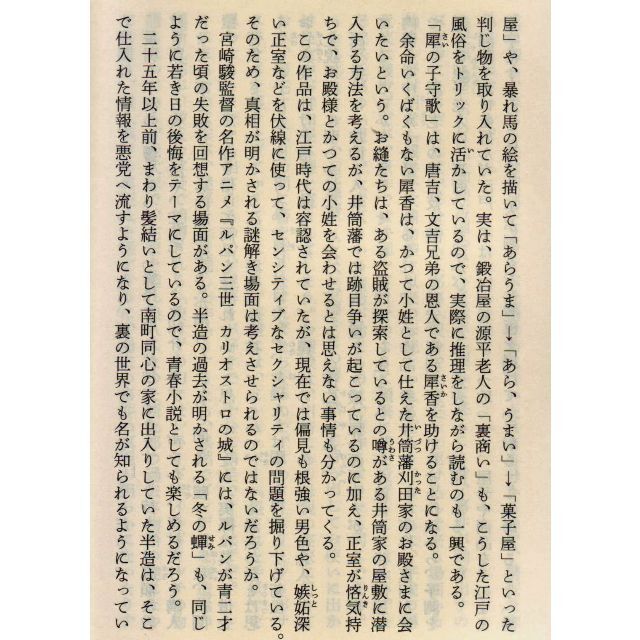 屋」や、暴れ馬の絵を描いて「あらうま」→「あら、うまい」→「菓子屋」といった
判じ物を取り入れていた。実は、鍛冶屋の源平老人の「裏商い」も、こうした江戸の
風俗をトリックに活かしているので、実際に推理をしながら読むのも一興である。
「犀の子守歌」は、唐吉、文吉兄弟の恩人である犀香を助けることになる。
余命いくばくもない犀香は、かつて小姓として仕えた井筒藩刈田家のお殿さまに会
いたいという。お縫たちは、ある盗賊が探索しているとの噂がある井筒家の屋敷に潜
入する方法を考えるが、井筒藩では跡目争いが起こっているのに加え、正室が悋気持
ちで、お殿様とかつての小姓を会わせるとは思えない事情も分かってくる。
この作品は、江戸時代は容認されていたが、現在では偏見も根強い男色や、嫉妬深
い正室などを伏線に使って、センシティブなセクシャリティの問題を掘り下げている。
そのため、真相が明かされる謎解き場面は考えさせられるのではないだろうか。
宮崎駿監督の名作アニメ『ルパン三世 カリオストロの城』には、ルパンが青二才
だった頃の失敗を回想する場面がある。半造の過去が明かされる「冬の蟬」も、同じ
ように若き日の後悔をテーマにしているので、青春小説としても楽しめるだろう。
二十五年以上前、まわり髪結いとして南町同心の家に出入りしていた半造は、そこ
で仕入れた情報を悪党へ流すようになり、裏の世界でも名が知られるようになってい